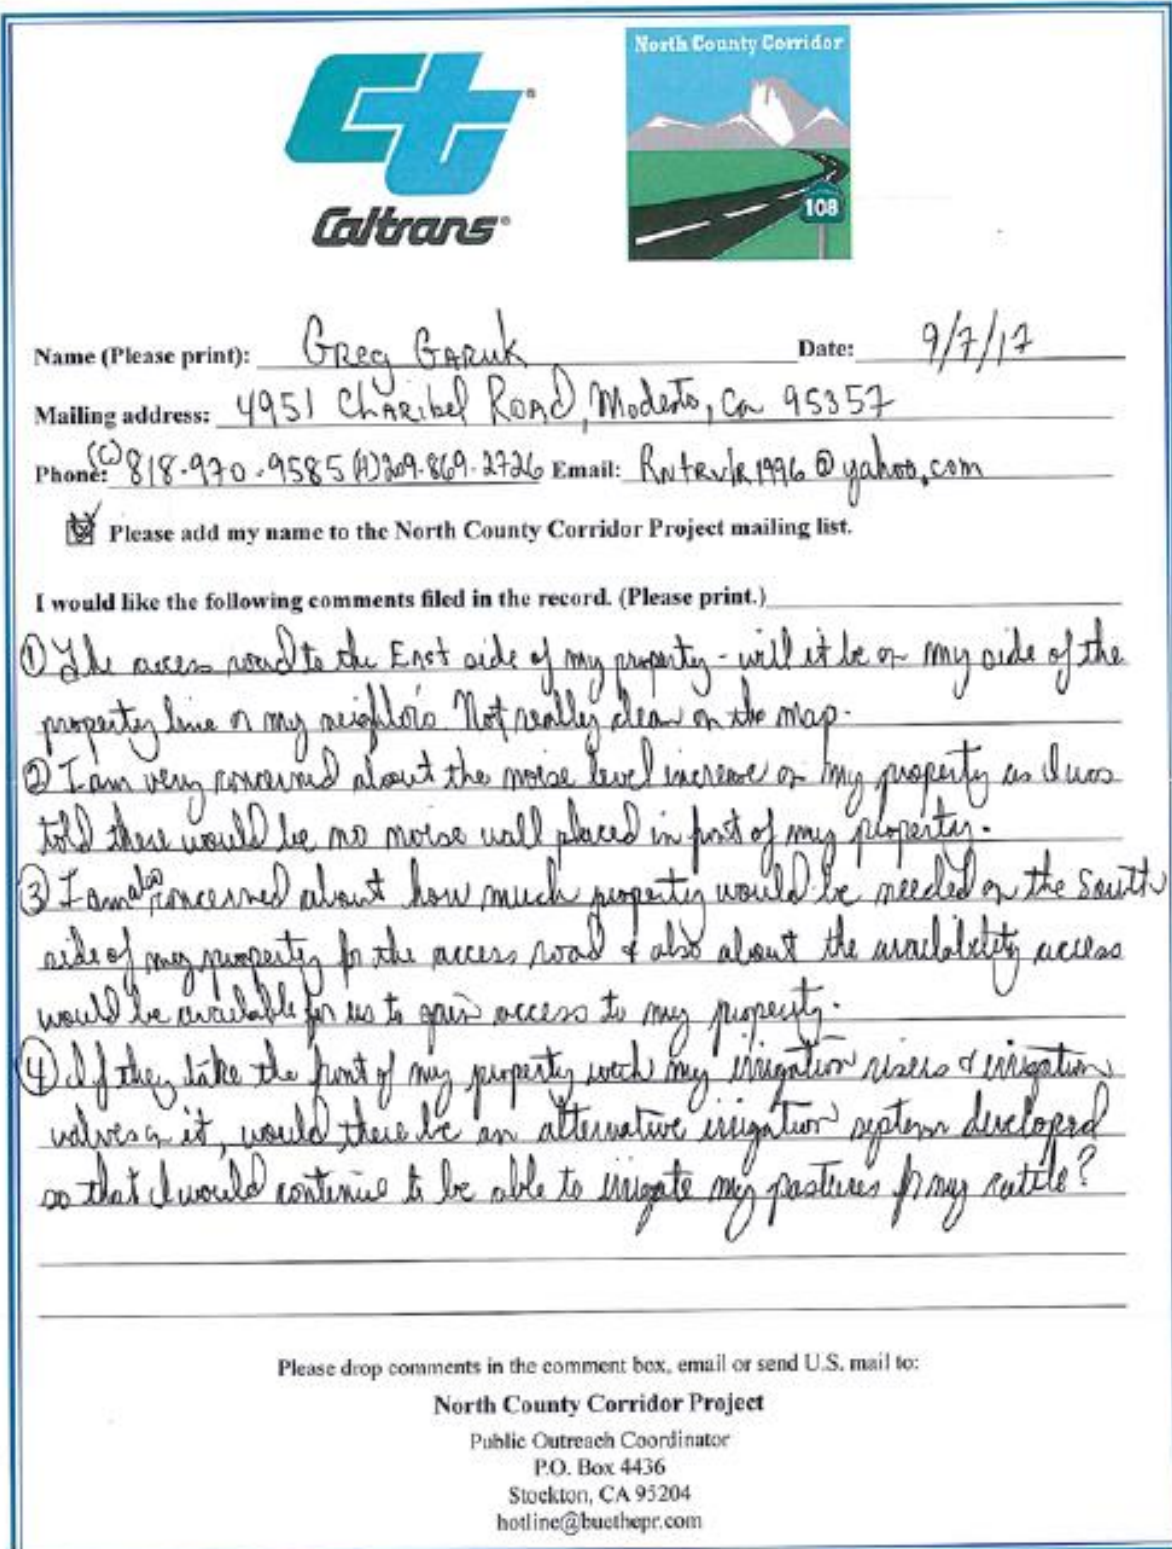 Ct
Caltrans
North County Corridor
108
Name (Please print): Greg Garuk Date: 9/7/17
Mailing address: 4951 Charibel Road, Modesto, Ca 95357
Phone: (C) 818-970-9585 (H) 209-869-2726 Email: @yahoo.com
Please add my name to the North County Corridor Project mailing list.
I would like the following comments filed in the record. (Please print.)
① The access road to the East side of my property - will it be on my side of the
property line or my neighbors. Not really clear on the map.
② I am very concerned about the noise level increase on my property as I was
told there would be no noise wall placed in front of my property.
③ I am also concerned about how much property would be needed on the South
side of my property for the access road & also about the availability access
would be available for us to gain access to my property.
④ If they take the front of my property with my irrigation risers & irrigation
valves on it, would there be an alternative irrigation system developed
so that I would continue to be able to irrigate my pastures for my cattle?
Please drop comments in the comment box, email or send U.S. mail to:
North County Corridor Project
Public Outreach Coordinator
P.O. Box 4436
Stockton, CA 95204
hotline@buethepr.com